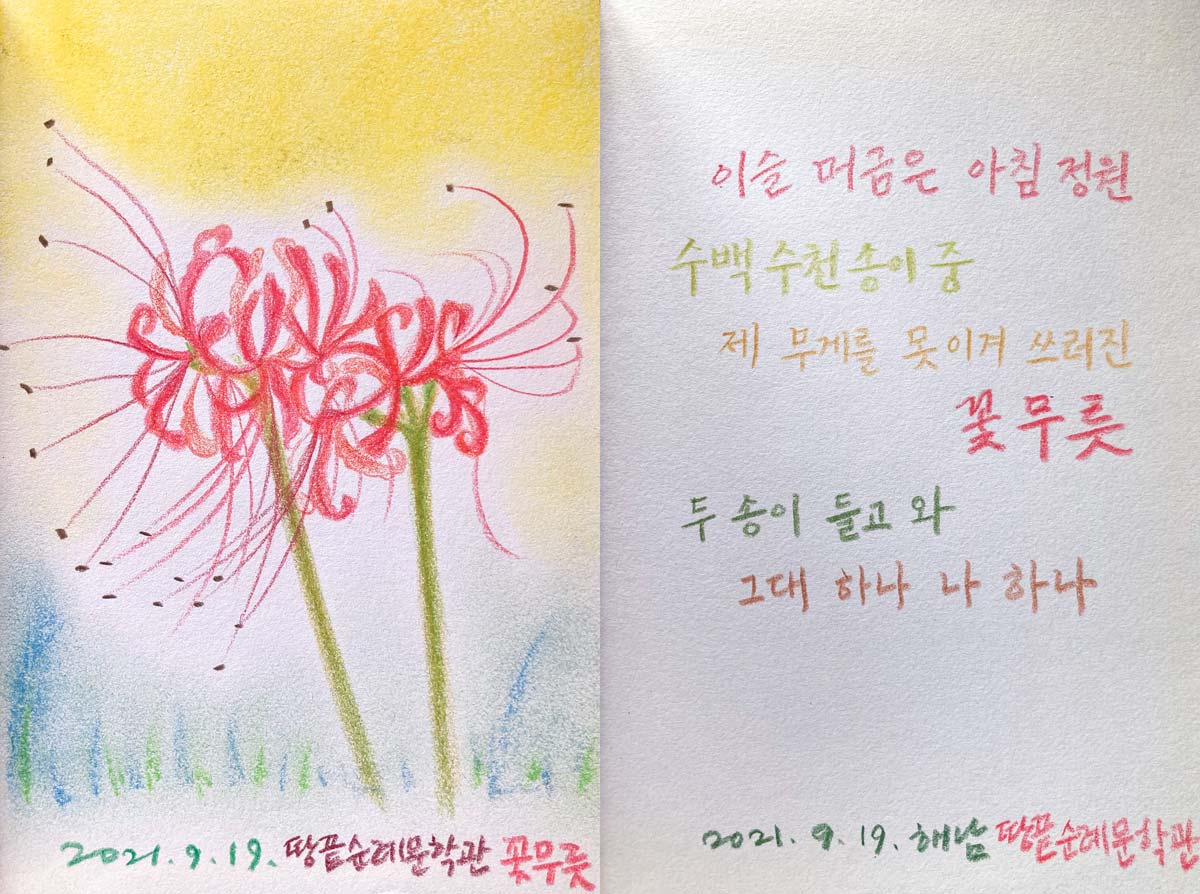 2021.9.19. 땅끝순례문학관 꽃무릇
이슬 머금은 아침 정원
수백 수천 송이 중
제 무게를 못 이겨 쓰러진
꽃무릇
두 송이 들고 와
그대 하나 나 하나
2021. 9. 19. 해남 땅끝순례문학관